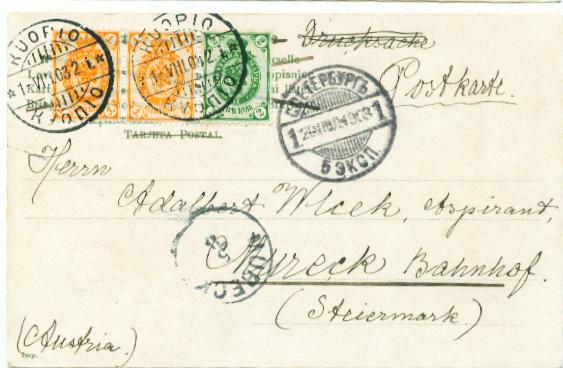 KUOPIO
1.VIII.03.2.t.
KUOPIO
KUOPIO
KUOPIO
Drucksache
Postkarte.
TARJETA POSTAL.
ПЕТЕРБУРГЪ
1
1
5 ЭКСП.
Herrn
Adalbert Wlcek, Aspirant,
MURECK
Mureck Bahnhof.
(Steiermark.)
(Austria.)
Imp.